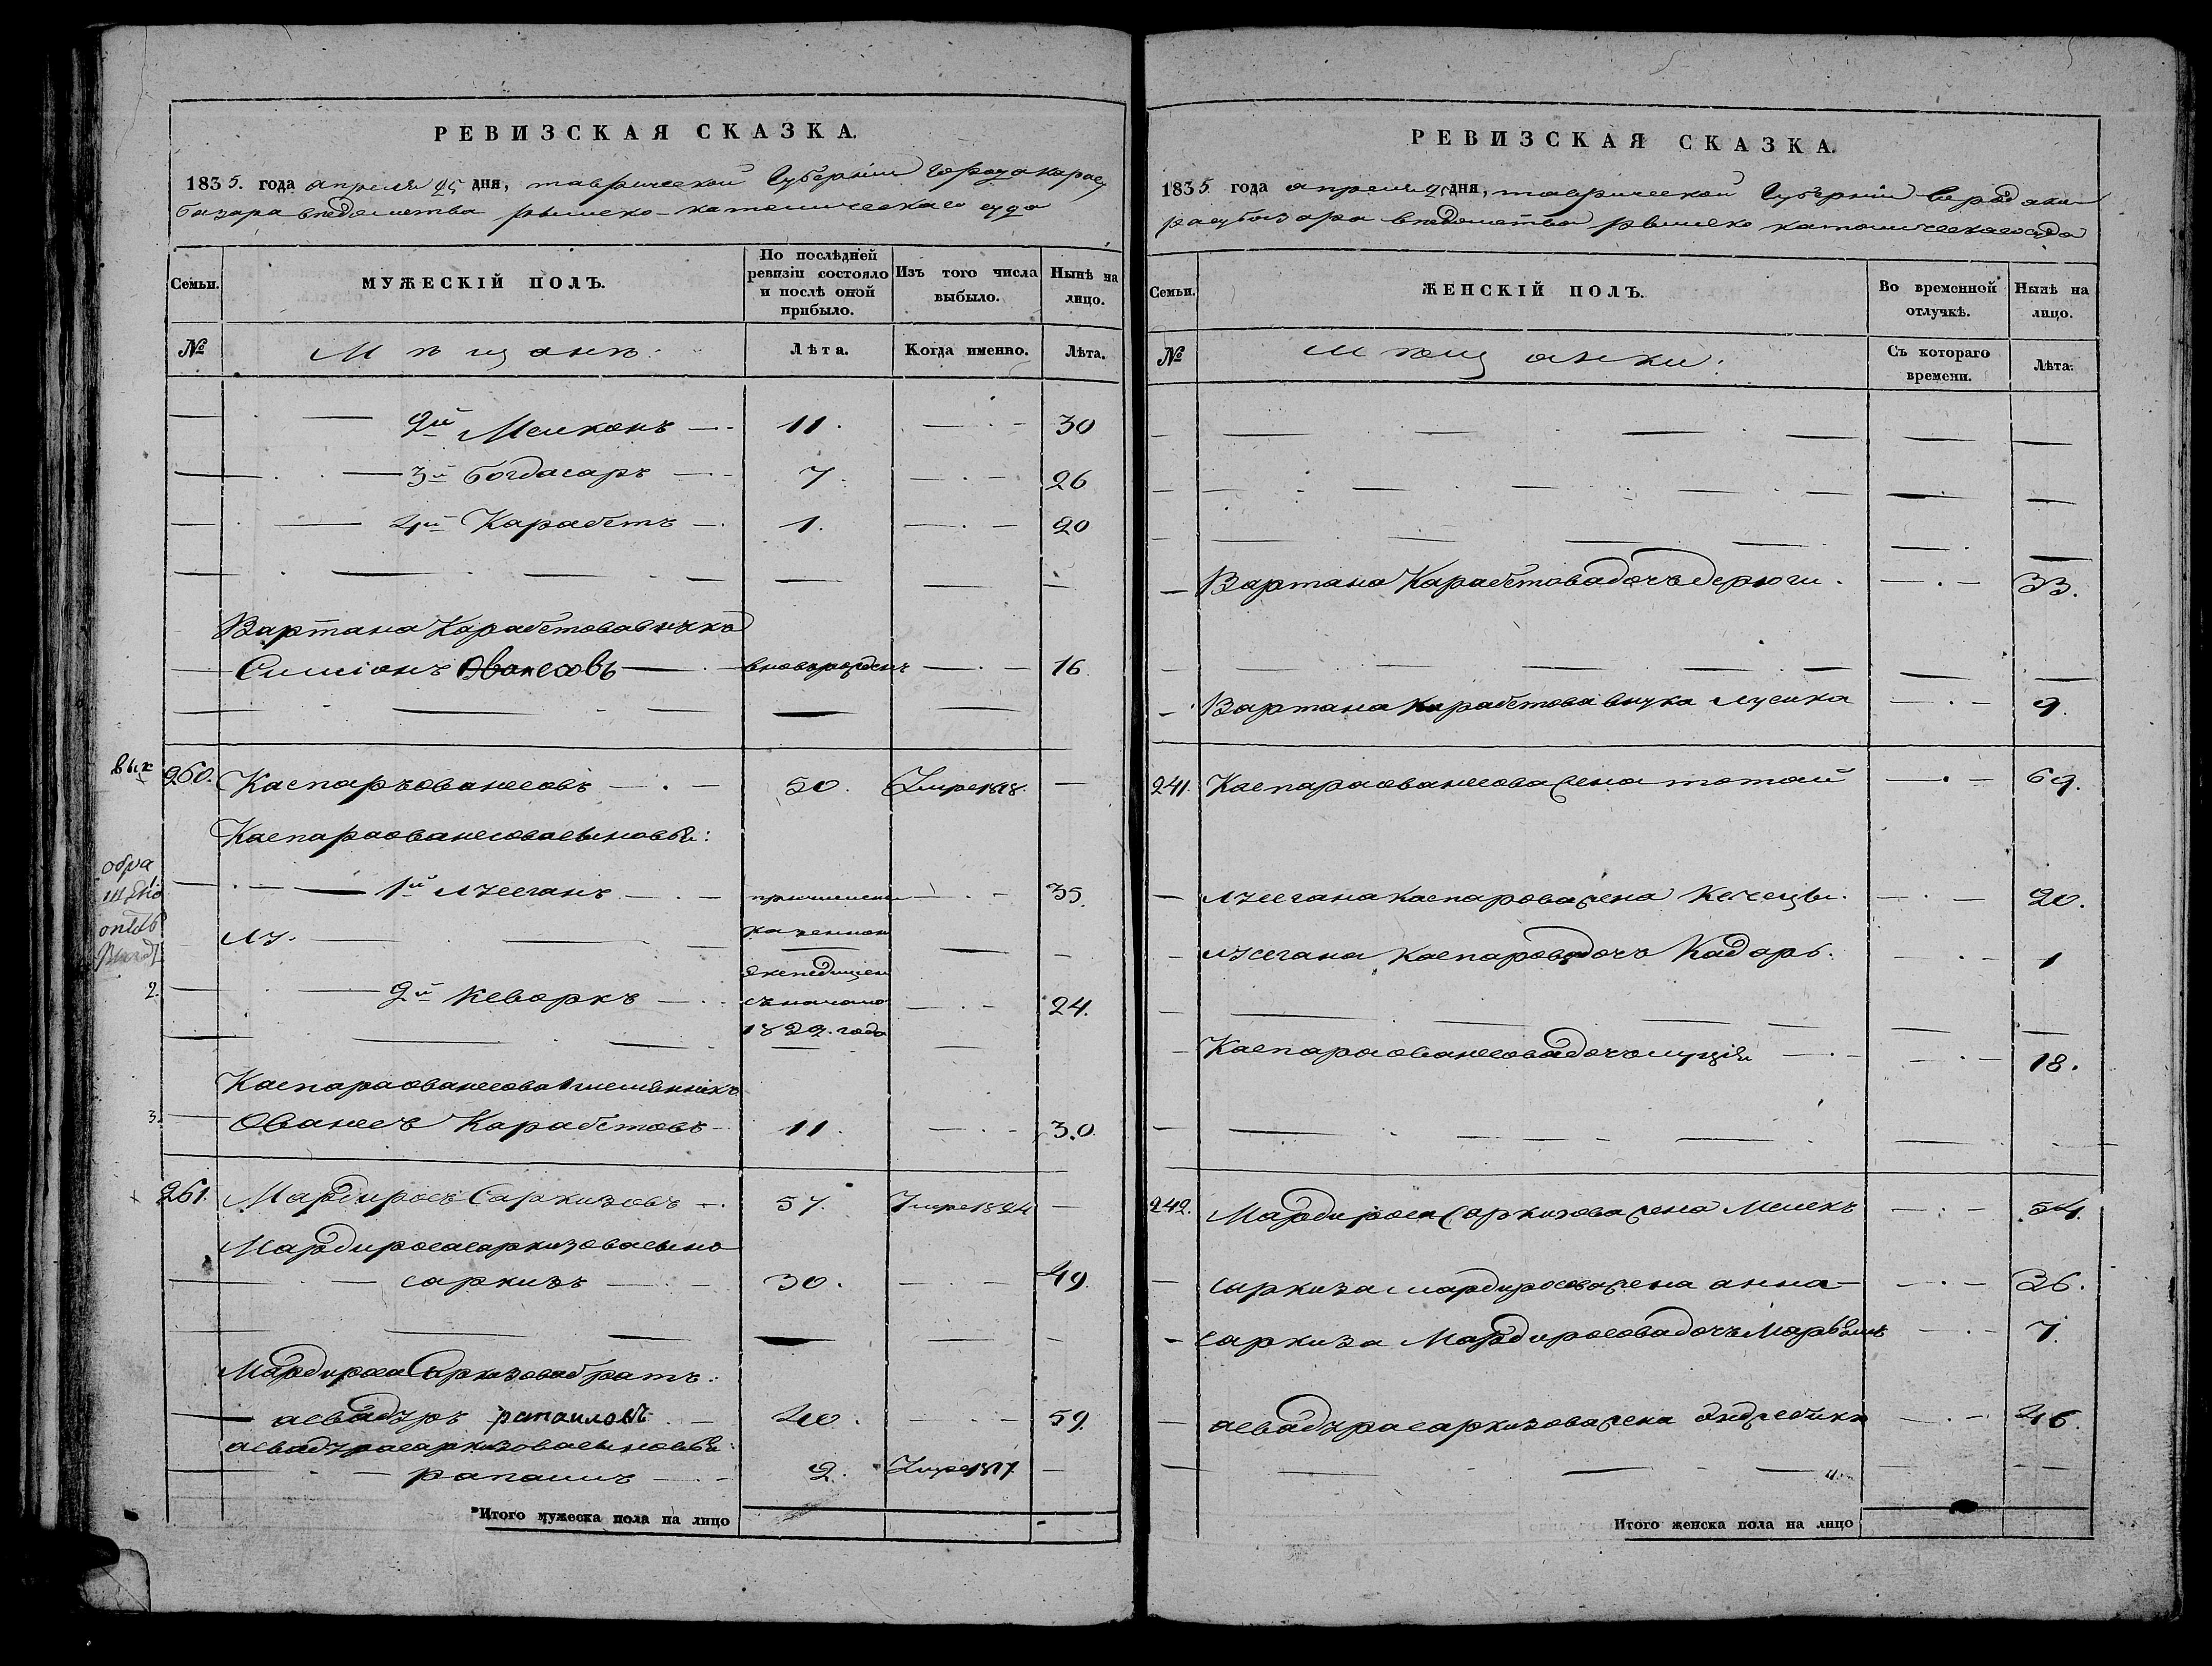 РЕВИЗСКАЯ СКАЗКА.
1835. года апреля 25 дня, таврической Губернии Города Карасу
базара ведомства римско-католическаго суда
Семьи.
МУЖЕСКІЙ ПОЛЪ.
По послѣдней ревизіи состояло и послѣ оной прибыло.
Изъ того числа выбыло.
Нынѣ на лицо.
№
Мѣщане:
Лѣта.
Когда именно.
Лѣта.
2й Мелконъ 11. 30
3й Богдасаръ 7. 26
4й Карабетъ 1. 20
Вартана Карабетова внукъ
Симіонъ Ованесовъ вновьрожденъ 16
260. Каспаръ Ованесовъ 50. Умре 1818.
Каспара Ованесова сыновья:
1й 35.
казенной
экспедицеи
2. 2й Кеворкъ съ начала 24.
1822. года
Каспара Ованесова племянникъ
3. Ованесъ Карабетовъ 11 30.
261. Мардиросъ Саркизовъ 57. Умре 1824
Мардироса Саркизова сынъ
саркизъ 30. 49.
Мардироса Саркизова братъ:
асвадуръ рапаиловъ 40. 59.
асвадура саркизова сыновья:
рапаилъ 2. Умре 1817
Итого мужеска пола на лицо
РЕВИЗСКАЯ СКАЗКА.
1835 года апреля 25 дня, таврической Губерніи Города ка
расубазара ведомства римско католическаго суда
Семьи.
ЖЕНСКІЙ ПОЛЪ.
Во временной отлучкѣ.
Нынѣ на лицо.
№
Мѣщанки:
Съ котораго времени.
Лѣта.
Вартана Карабетова дочь 33.
Вартана Карабетова внука лусика 9.
241. Каспара Ованесова жена тотай 69.
Каспарова жена 20.
Каспарова дочь Кадаръ. 1
Каспара Ованесова дочь 18.
242. Мардироса Саркизова жена Мелекъ 54.
саркиза мардиросова жена анна 36.
саркиза Мардиросова дочь 7.
асвадура саркизова жена 46.
Итого женска пола на лицо